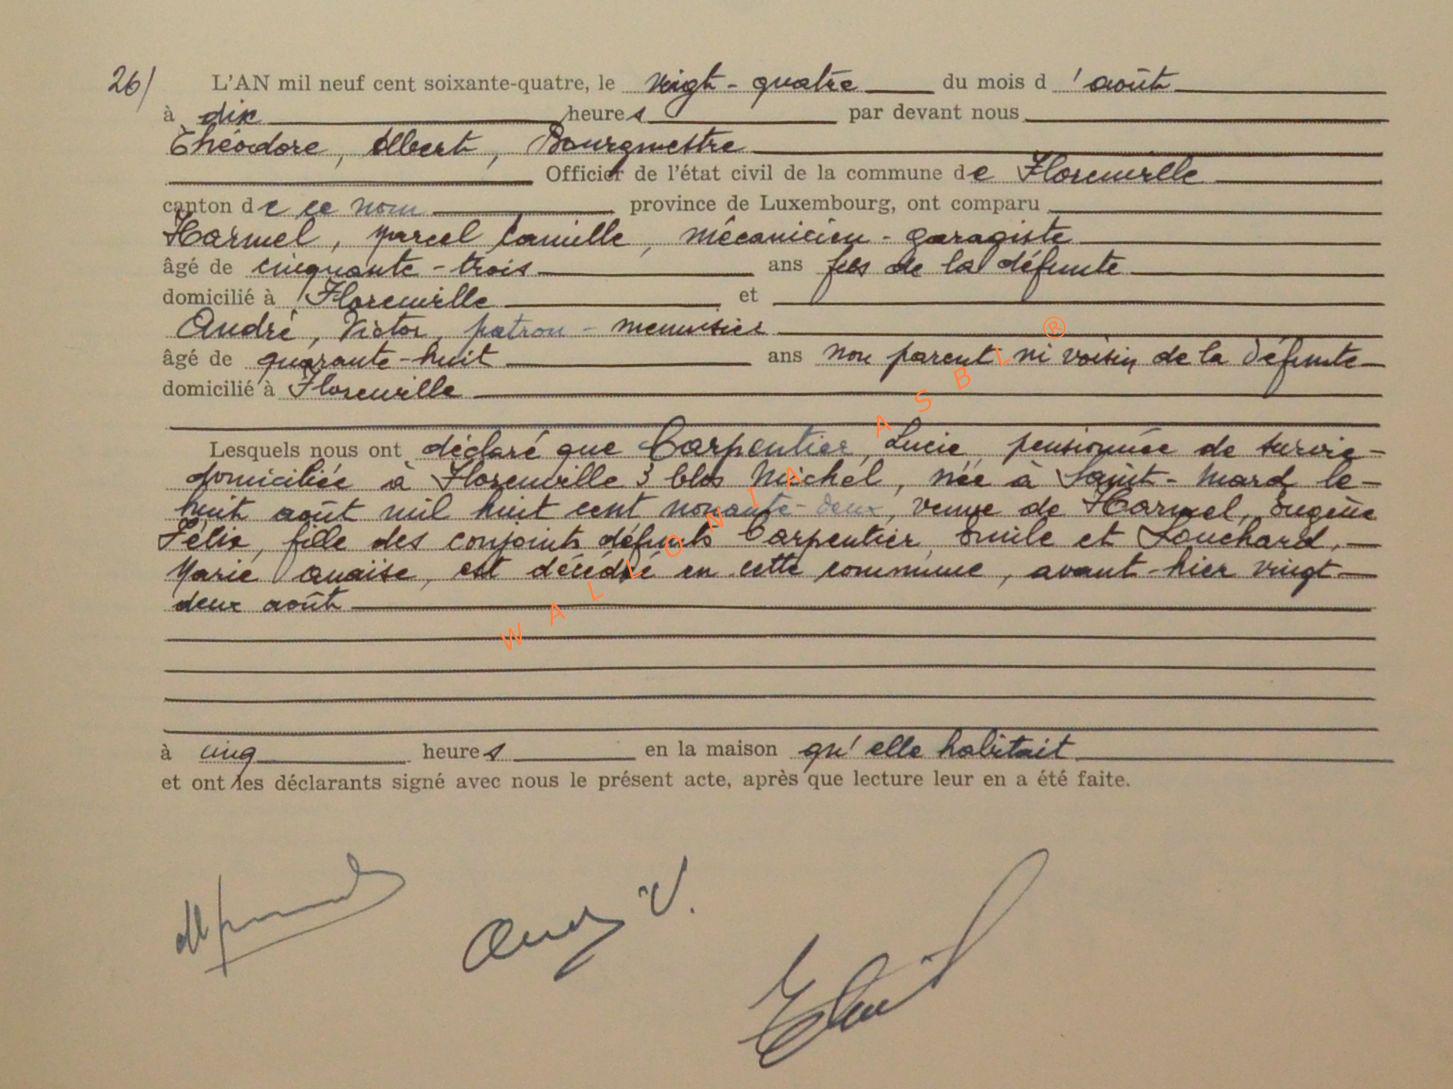 26/ L'AN mil neuf cent soixante-quatre, le vingt-quatre du mois d'août
à dix heures par devant nous
Théodore, Albert, Bourgmestre
Officier de l'état civil de la commune de Florenville
canton de ce nom province de Luxembourg, ont comparu
Harmel, Marcel Camille, mécanicien-garagiste
âgé de cinquante-trois ans fils de la défunte
domicilié à Florenville et
André, Victor, patron-menuisier
âgé de quarante-huit ans non parent ni voisin de la défunte
domicilié à Florenville
Lesquels nous ont déclaré que Carpentier, Lucie pensionnée de survie
domiciliée à Florenville 3 clos Michel, née à Saint-Mard le
huit août mil huit cent nonante-deux, veuve de Harmel, Eugène
Félix, fille des conjoints défunts Carpentier, Emile et Souchard,
Marie Anaïse, est décédée en cette commune, avant-hier vingt-
deux août
à cinq heures en la maison qu'elle habitait
et ont les déclarants signé avec nous le présent acte, après que lecture leur en a été faite.
André V.
WALLONIA ASBL ®